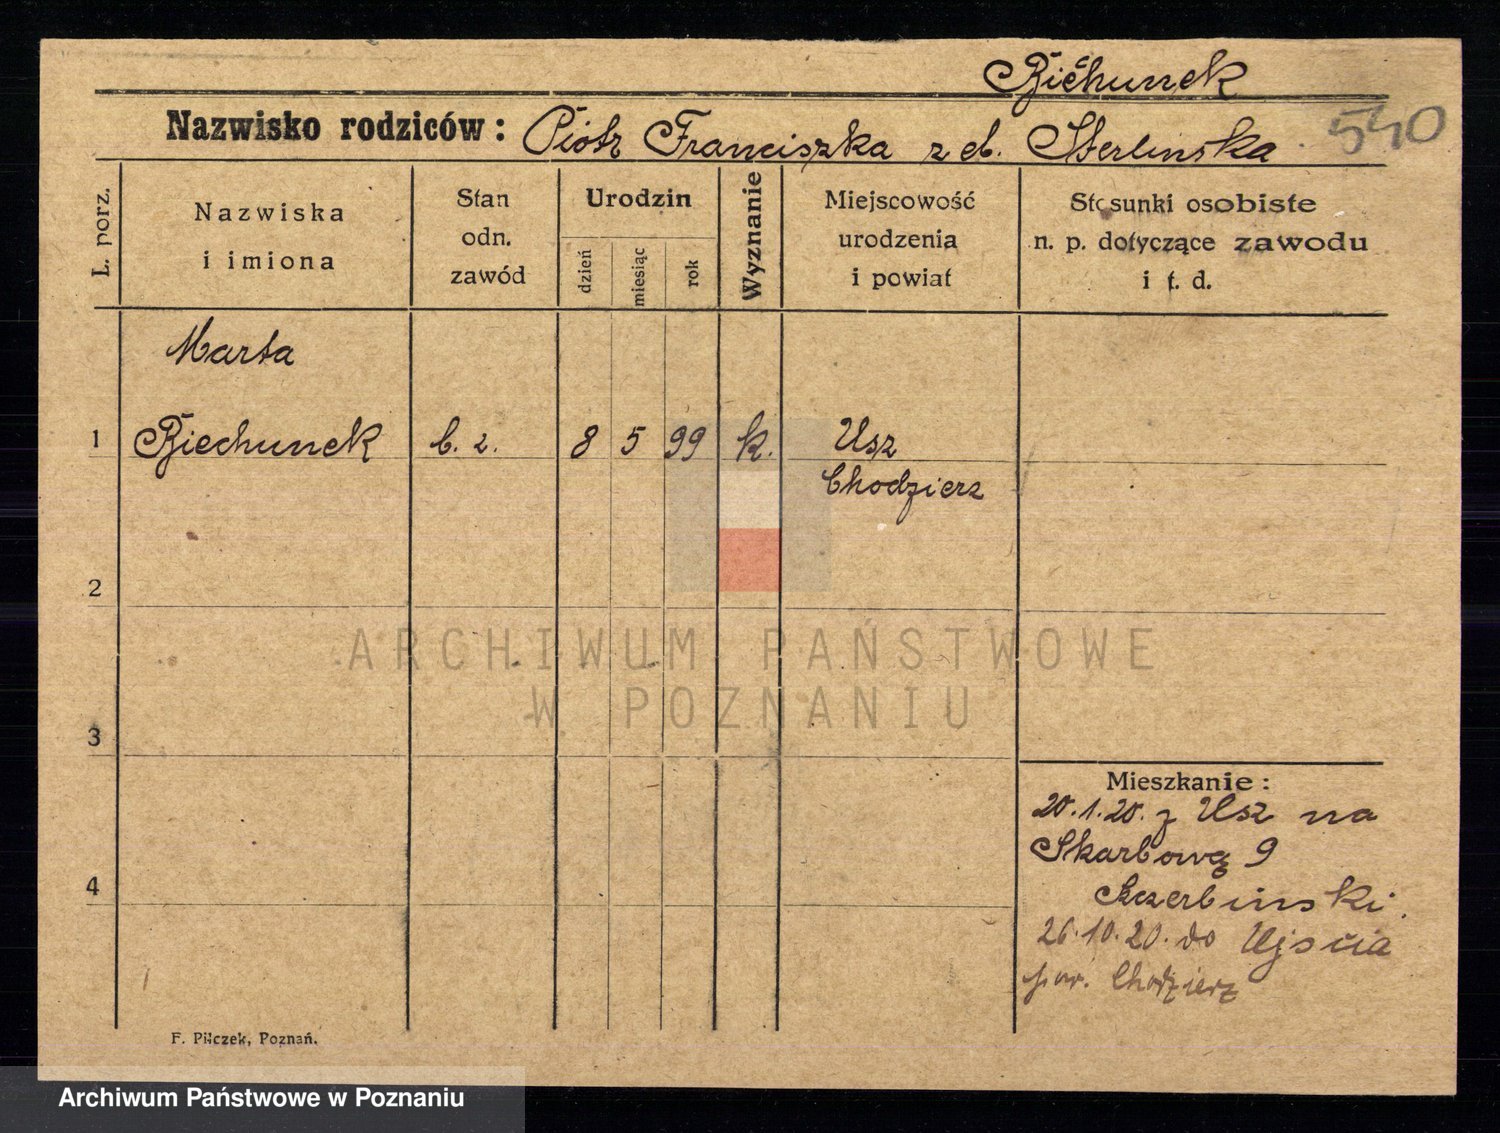 Biechunek
Nazwisko rodziców: Piotr Franciszka z d. Sterlinska
540
L. porz.
Nazwiska
i imiona
Stan
odn.
zawód
Urodzin
dzień
miesiąc
rok
Wyznanie
Miejscowość
urodzenia
i powiat
Stosunki osobiste
n. p. dotyczące zawodu
i t. d.
Marta
1 Biechunek b. z. 8 5 99 k. Usz
Chodzierz
2
3
4
Mieszkanie:
20.1.20. z Usz na
Skarbową 9
Szczerbinski.
26.10.20. do Ujścia
pow. Chodzierz
F. Pilczek, Poznań.
ARCHIWUM PAŃSTWOWE
W POZNANIU
Archiwum Państwowe w Poznaniu